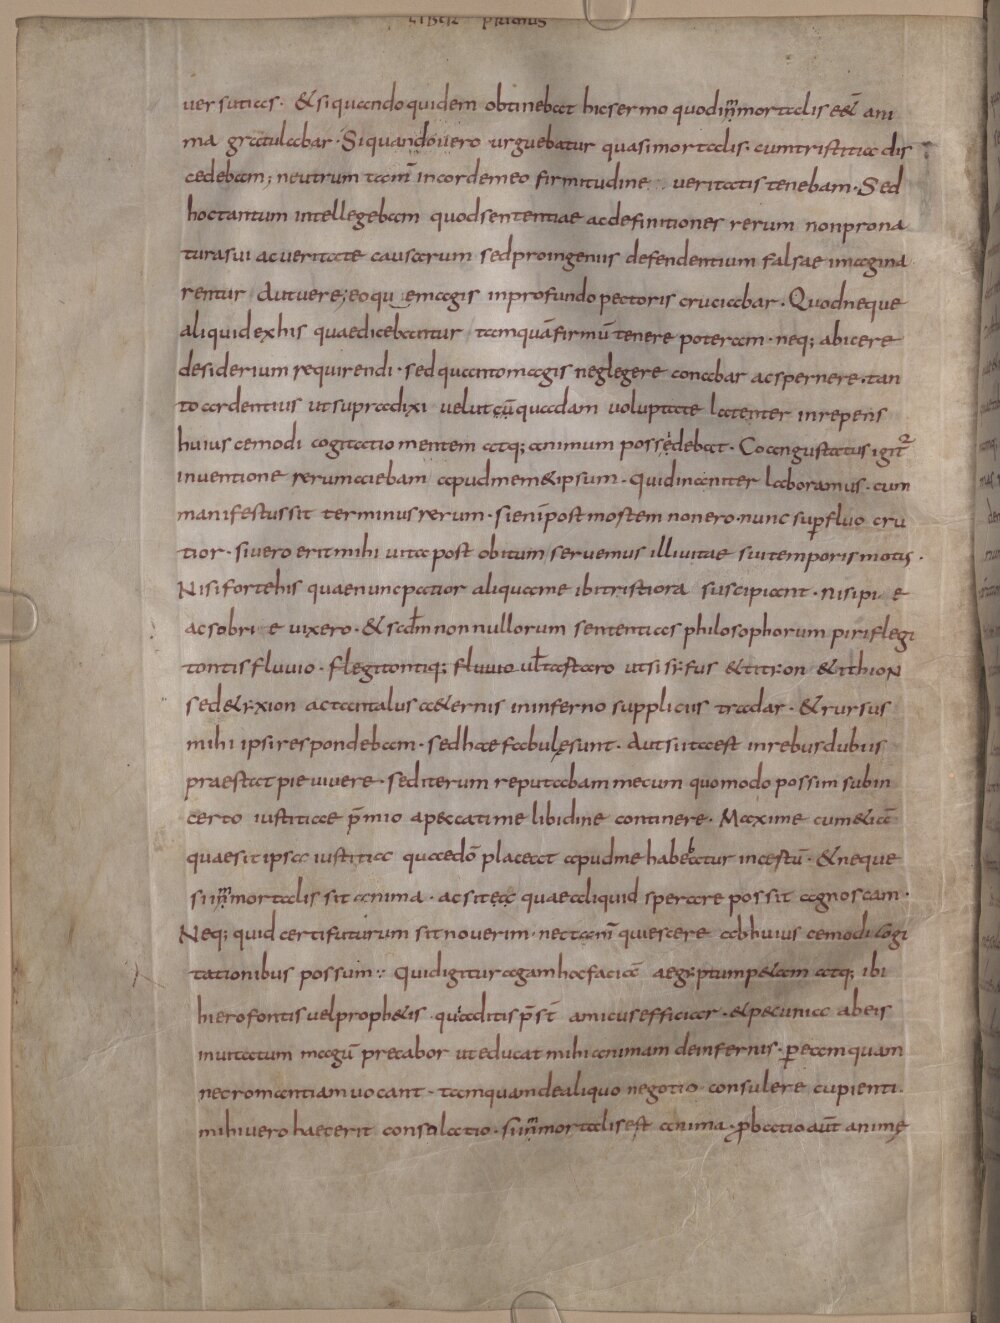 LIBER PRIMUS
versutias. & si quando quidem obtinebat hic sermo quod inmortalis eēt ani
ma gratulabar. Si quando vero urguebatur quasi mortalis. cum tristitia dis
cedebam; neutrum tam̄ in corde meo firmitudine veritatis tenebam. Sed
hoc tantum intellegebam quod sententiae ac definitiones rerum non pro na
tura sui ac veritate causarum sed pro ingeniis defendentium falsae imagina
rentur aut vere; eo qu emagis in profundo pectoris cruciabar. Quod neque
aliquid ex his quae dicebantur tamquā firmū tenere poteram. neq; abicere
desiderium requirendi. sed quanto magis neglegere conabar ac spernere. tan
to ardentius ut supra dixi velut cū quadam voluptate latenter inrepens
huiuscemodi cogitatio mentem atq; animum possedebat. Coangustatus igit᷑
inventione rerum aiebam apud mem&ipsum. quid inaniter laboramus. cum
manifestus sit terminus rerum. si eni post mostem non ero. nunc sup̱fluo cru
tior. si vero erit mihi vita post obitum servemus illi vitae sui temporis motis.
Nisi forte his quae nunc patior aliqua me ibi tristiora suscipiant. nisi pi e
ac sobri e vixero. & scdm̄ nonnullorum sententias philosophorum piriflegi
tontis fluvio. flegitontiq; fluvio vel tastaro ut sisyfus & tityon & ithion
sed & yxion ac tantalus a&ernis in inferno suppliciis tradar. & rursus
mihi ipsi respondebam. sed haec fabulę sunt. Aut si ita est in rebus dubiis
praestat pie vivere. sed iterum reputabam mecum quomodo possim sub in
certo iustitiae p̄mio a peccati me libidine continere. Maxime cum &iā
quae sit ipsa iustitia quae dō placeat apud me habeatur incestū. & neque
si inmortalis sit anima. ac si tac quae aliquid sperare possit cognoscam.
Neq; quid certi futurum sit noverim. nec tam̄ quiescere ab huiuscemodi cogi
tationibus possum: quid igitur agam hoc faciā aegyptum p&am atq; ibi
hierofontis vel proph&is qui aditis p̄st̄ amicus efficiar. & pecunia ab eis
invitatum magū precabor ut educat mihi animam de infernis. p̱ eam quam
necromantiam vocant. tamquam de aliquo negotio consulere cupienti.
mihi vero haec erit consolatio. si inmortalis est anima. ꝓbatio aūt animę